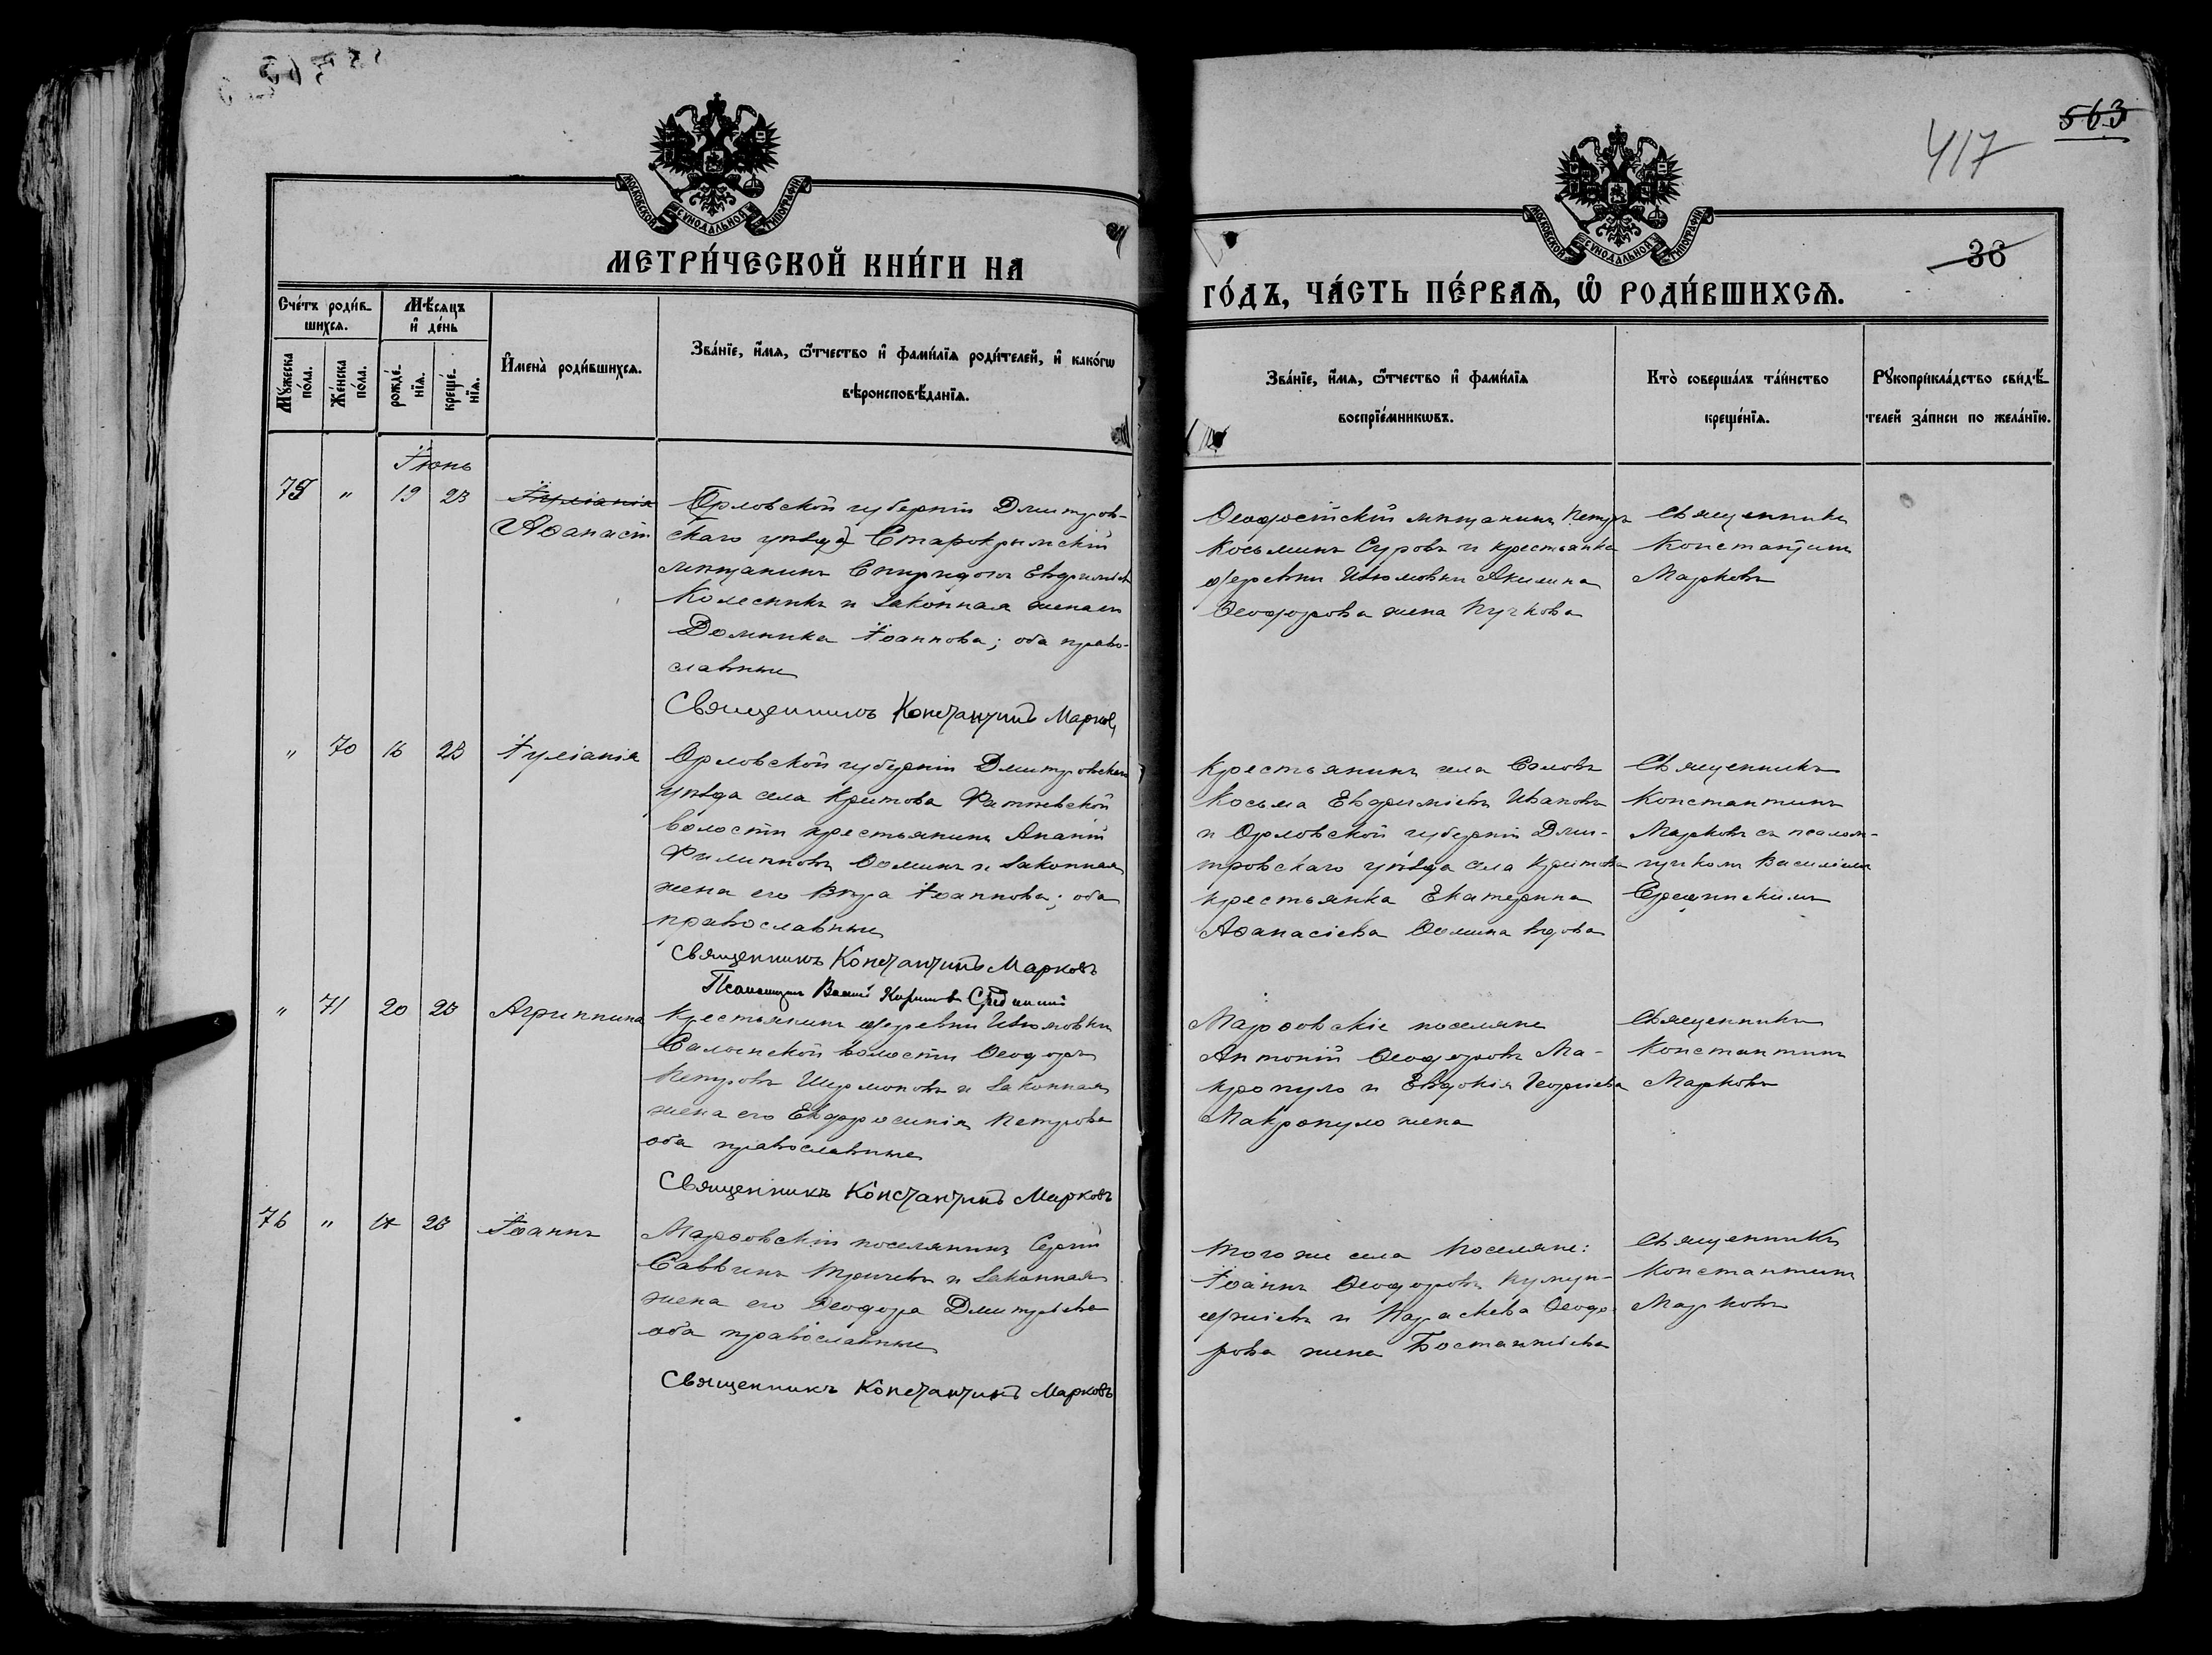 563
417
36
МОСКОВСКОЙ СѴНОДАЛЬНОЙ ТИПОГРАФІИ
МОСКОВСКОЙ СѴНОДАЛЬНОЙ ТИПОГРАФІИ
МЕТРИ́ЧЕСКОЙ КНИ́ГИ НА
ГО́ДЪ, ЧА́СТЬ ПЕ́РВАѦ, Ѽ РОДИ́ВШИХСѦ.
Сче́тъ роди́в-
шихсѧ.
Мꙋ́жеска по́ла.
Же́нска по́ла.
Мѣ́сѧцъ
и҆ де́нь
рожде́-нїѧ.
креще́-нїѧ.
И҆мена̀ роди́вшихсѧ.
Зва́нїе, и҆́мѧ, ѻ҆́тчество и҆ фами́лїѧ роди́телей, и҆ како́гѡ
вѣроисповѣ́данїѧ.
Зва́нїе, и҆́мѧ, ѻ҆́тчество и҆ фами́лїѧ
воспрїе́мникѡвъ.
Кто̀ соверша́лъ та́инство
креще́нїѧ.
Рꙋкоприкла́дство свидѣ́-
телей за́писи по жела́нїю.
Іюнь
75 " 19 23 Іуліанія
Аѳанасій
Орловской губерніи Дмитров-
скаго уѣзда Старокрымскій
мѣщанинъ Спиридонъ Евфиміевъ
Колесникъ и законная жена его
Домника Іоаннова; оба право-
славные
Священникъ Константинъ Марковъ
Ѳеодосійскій мѣщанинъ Петръ
Косьминъ Суровъ и крестьянка
деревни Изюмовки Акилина
Ѳеодорова жена Пучкова
Священникъ
Константинъ
Марковъ
" 70 16 23 Іуліанія
Орловской губерніи Дмитровскаго
уѣзда села Крупова
волости крестьянинъ Ананій
Филипповъ Ѳоминъ и законная
жена его Вѣра Іоаннова; оба
православные
Священникъ Константинъ Марковъ
Псаломщикъ
Крестьянинъ села Саловъ
Косьма Евфиміевъ Ивановъ
и Орловской губерніи Дми-
тровскаго уѣзда села
крестьянка Екатерина
Аѳанасіева Ѳомина вдова
Священникъ
Константинъ
Марковъ съ псалом-
щикомъ Василіемъ
Срединскимъ
" 71 20 23 Агриппина
Крестьянинъ деревни Изюмовки
Салынской волости Ѳеодоръ
Петровъ и законная
жена его Евфросинія Петрова
оба православные
Священникъ Константинъ Марковъ
Марѳовскіе поселяне
Антоній Ѳеодоровъ Ма-
кропуло и Евдокія Георгіева
Макропуло жена
Священникъ
Константинъ
Марковъ
76 " 14 23 Іоаннъ
Марѳовскій поселянинъ Сергій
Саввинъ и законная
жена его Ѳеодора Дмитріева
оба православные
Священникъ Константинъ Марковъ
того же села поселяне:
Іоаннъ Ѳеодоровъ
и Параскева Ѳеодо-
рова жена
Священникъ
Константинъ
Марковъ